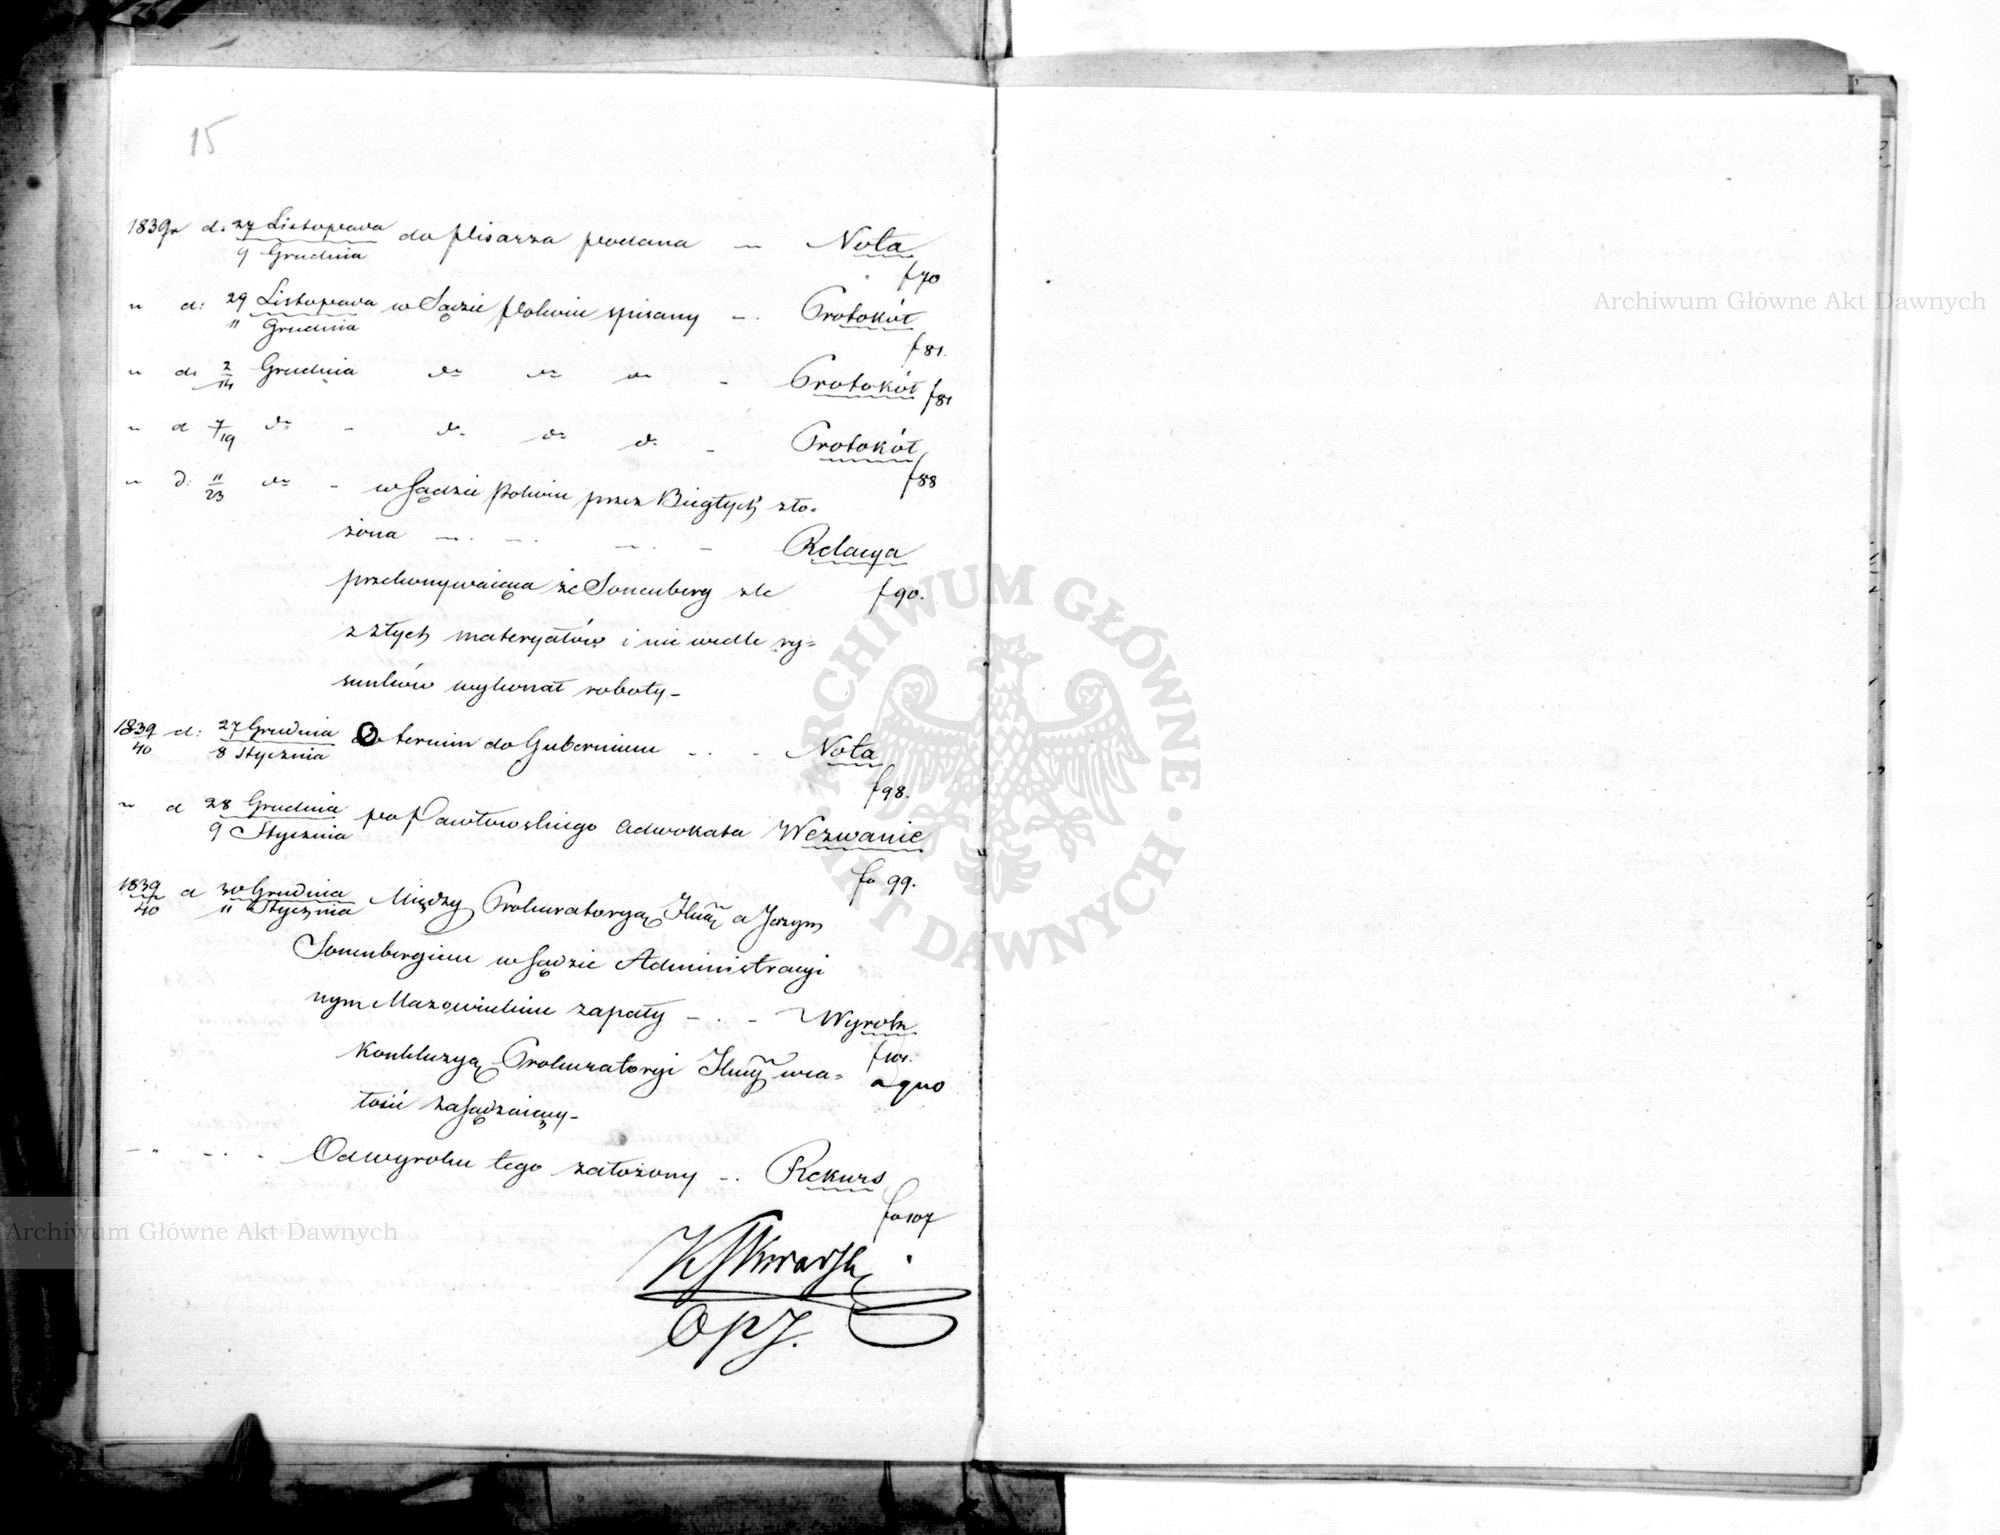 15
1839r d: 27 Listopada / 9 Grudnia do Pisarza podana — Nota
f 70
" d: 29 Listopada / 11 Grudnia w Sądzie Pokoiu spisany — Protokół
f 81.
" d: 2/14 Grudnia do do do - Protokół f 81
" d 7/19 do - do do do - Protokół
f 88
" d: 11/23 do - w Sądzie Pokoiu przez Biegłych zło-
żona — — — - Relacya
przekonywaiąca że Sonenberg źle f 90.
z złych materyałów i nie wedle ry=
sunków wykonał roboty -
1839/40 d: 27 Grudnia / 8 Stycznia O termin do Gubernium - . - Nota
f 98.
" d 28 Grudnia / 9 Stycznia po Pawłowskiego Adwokata Wezwanie
fo 99.
1839/40 d 30 Grudnia / 11 Stycznia Między Prokuratoryą a Jerzym
Sonenbergiem w Sądzie Administracyi
nym Mazowieckim zapały - . - Wyrok
Konkluzyą Prokuratoryi w ca=
a quo
łości zasądzaiący -
Od wyroku tego założony - . Rekurs
fo 107
OPJ.
Archiwum Główne Akt Dawnych
Archiwum Główne Akt Dawnych
ARCHIWUM GŁÓWNE · AKT DAWNYCH ·